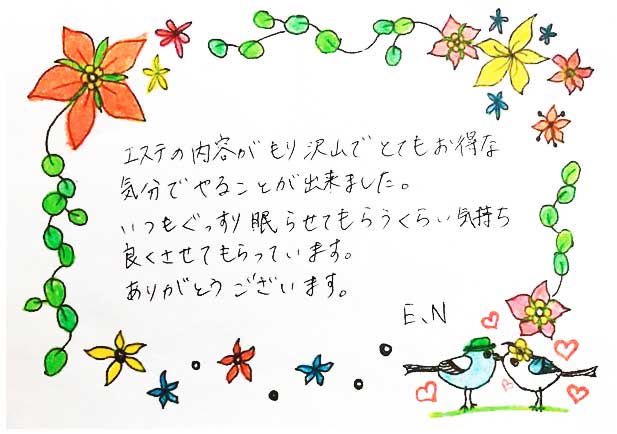 エステの内容がもり沢山でとてもお得な
気分でやることが出来ました。
いつもぐっすり眠らせてもらうくらい気持ち
良くさせてもらっています。
ありがとうございます。
E、N